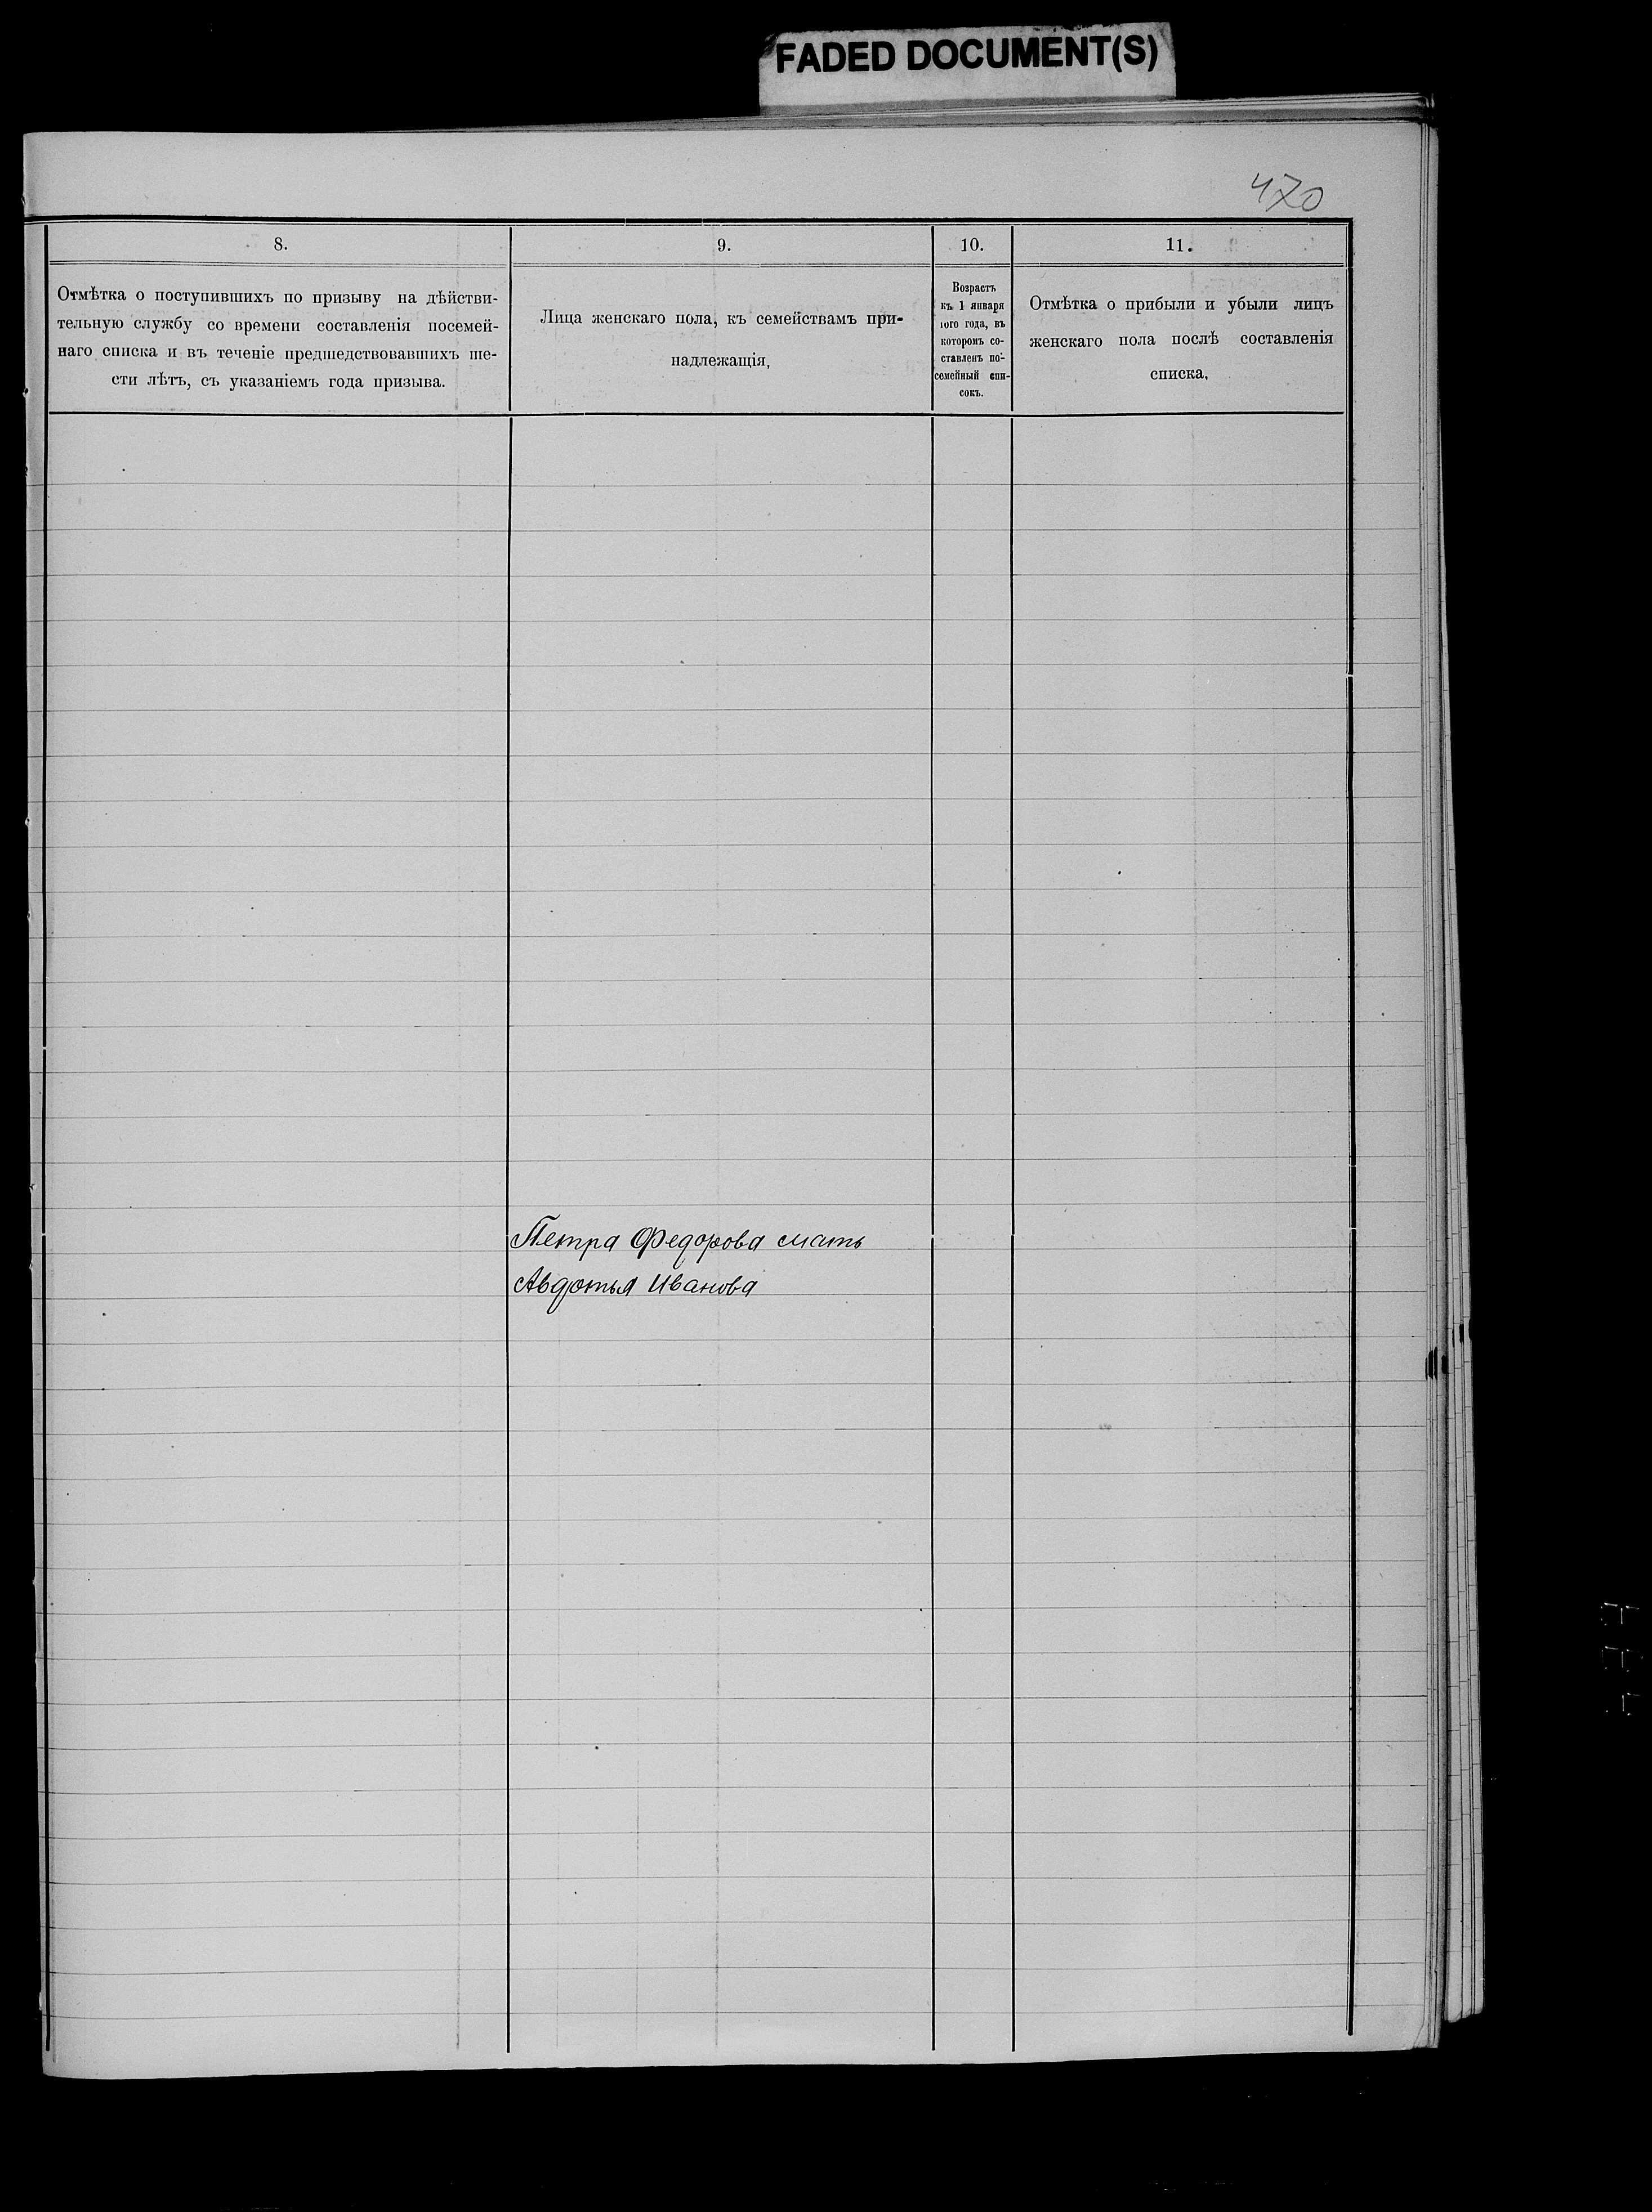 FADED DOCUMENT(S)
470
8.
9.
10.
11.
Отмѣтка о поступившихъ по призыву на дѣйстви-
тельную службу со времени составленія посемей-
наго списка и въ теченіе предшедствовавшихъ ше-
сти лѣтъ, съ указаніемъ года призыва.
Лица женскаго пола, къ семействамъ при-
надлежащія,
Возрастъ
къ 1 января
того года, въ
которомъ со-
ставленъ по-
семейный спи-
сокъ.
Отмѣтка о прибыли и убыли лицъ
женскаго пола послѣ составленія
списка,
Петра Федорова мать
Авдотья Иванова